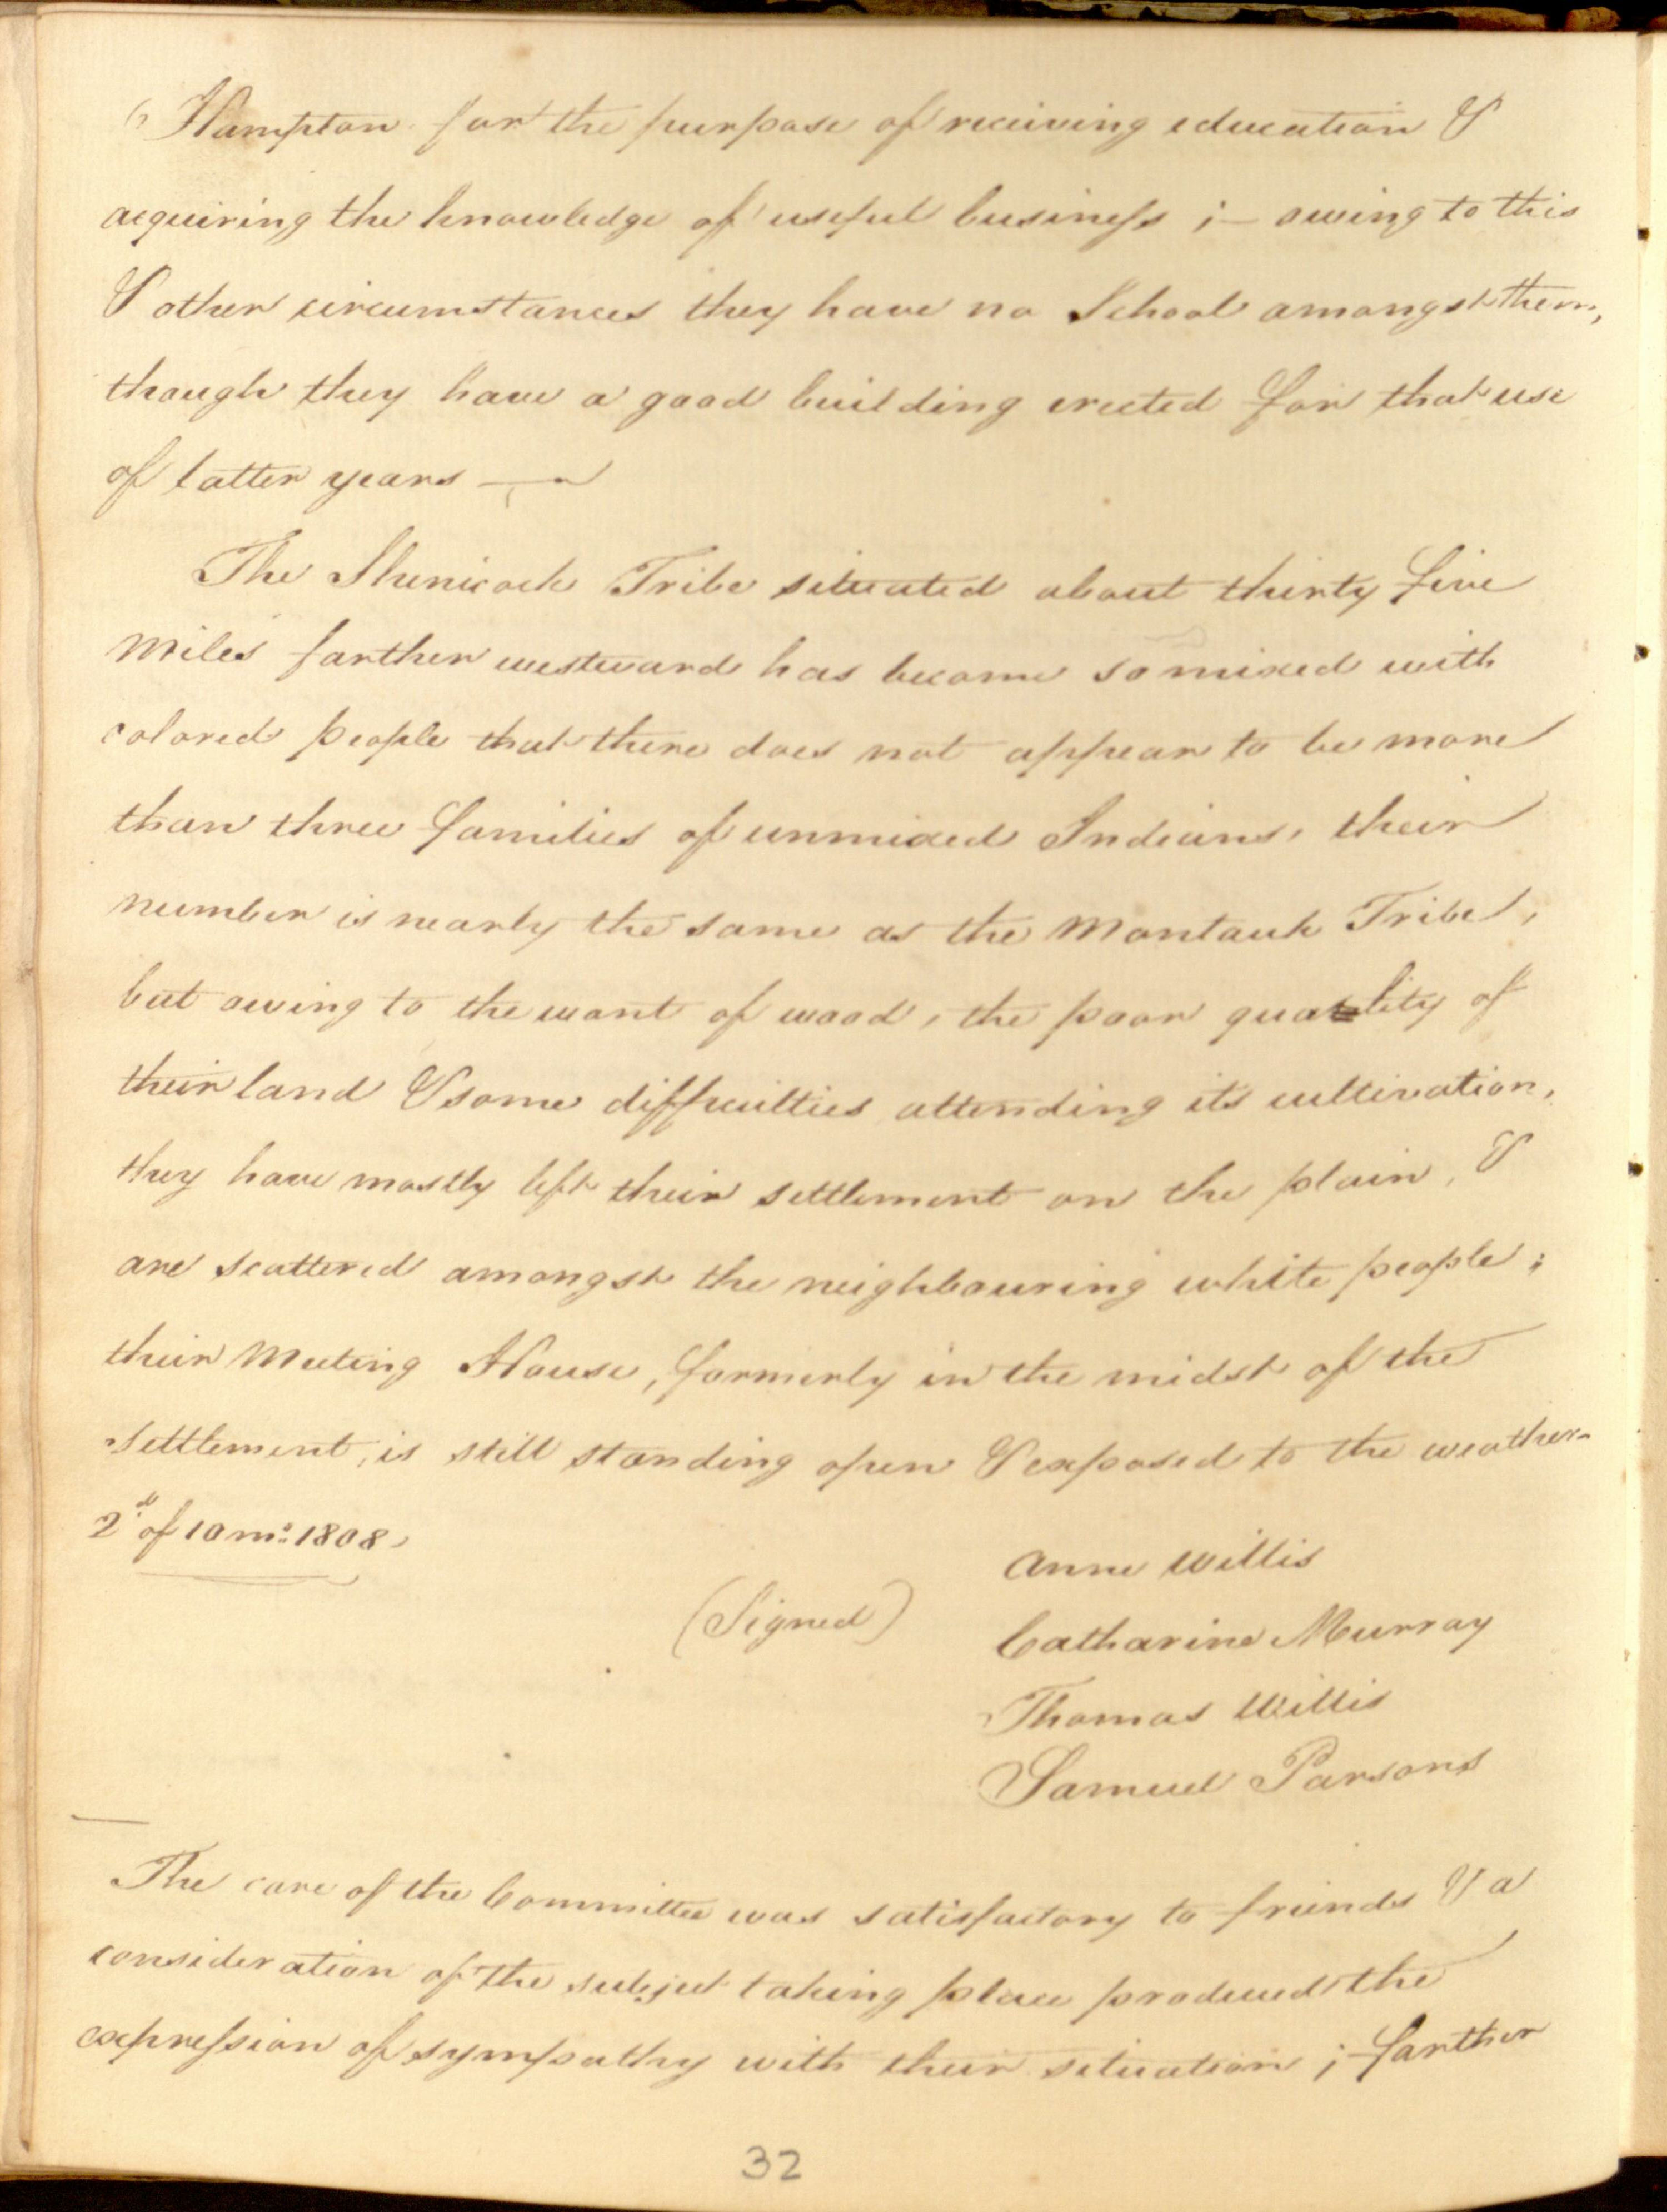 Hampton for the purpose of receiving education &
acquiring the knowledge of useful business ;— owing to this
& other circumstances they have no School amongst them,
though they have a good building erected for that use
of latter years —
The Shunicock Tribe situated about thirty five
miles farther westward has become so mixed with
colored people that there does not appear to be more
than three families of unmixed Indians, their
number is nearly the same as the Montauk Tribe,
but owing to the want of wood, the poor quality of
their land & some difficulties attending its cultivation,
they have mostly left their settlement on the plain, &
are scattered amongst the neighbouring white people;
their Meeting House, formerly in the midst of the
settlement, is still standing open & exposed to the weather—
2d of 10 mo. 1808.
Anne Willis
(Signed)
Catharine Murray
Thomas Willis
Samuel Parsons
The care of the Committee was satisfactory to friends & a
consideration of the subject taking place produced the
expression of sympathy with their situation ; farther
32